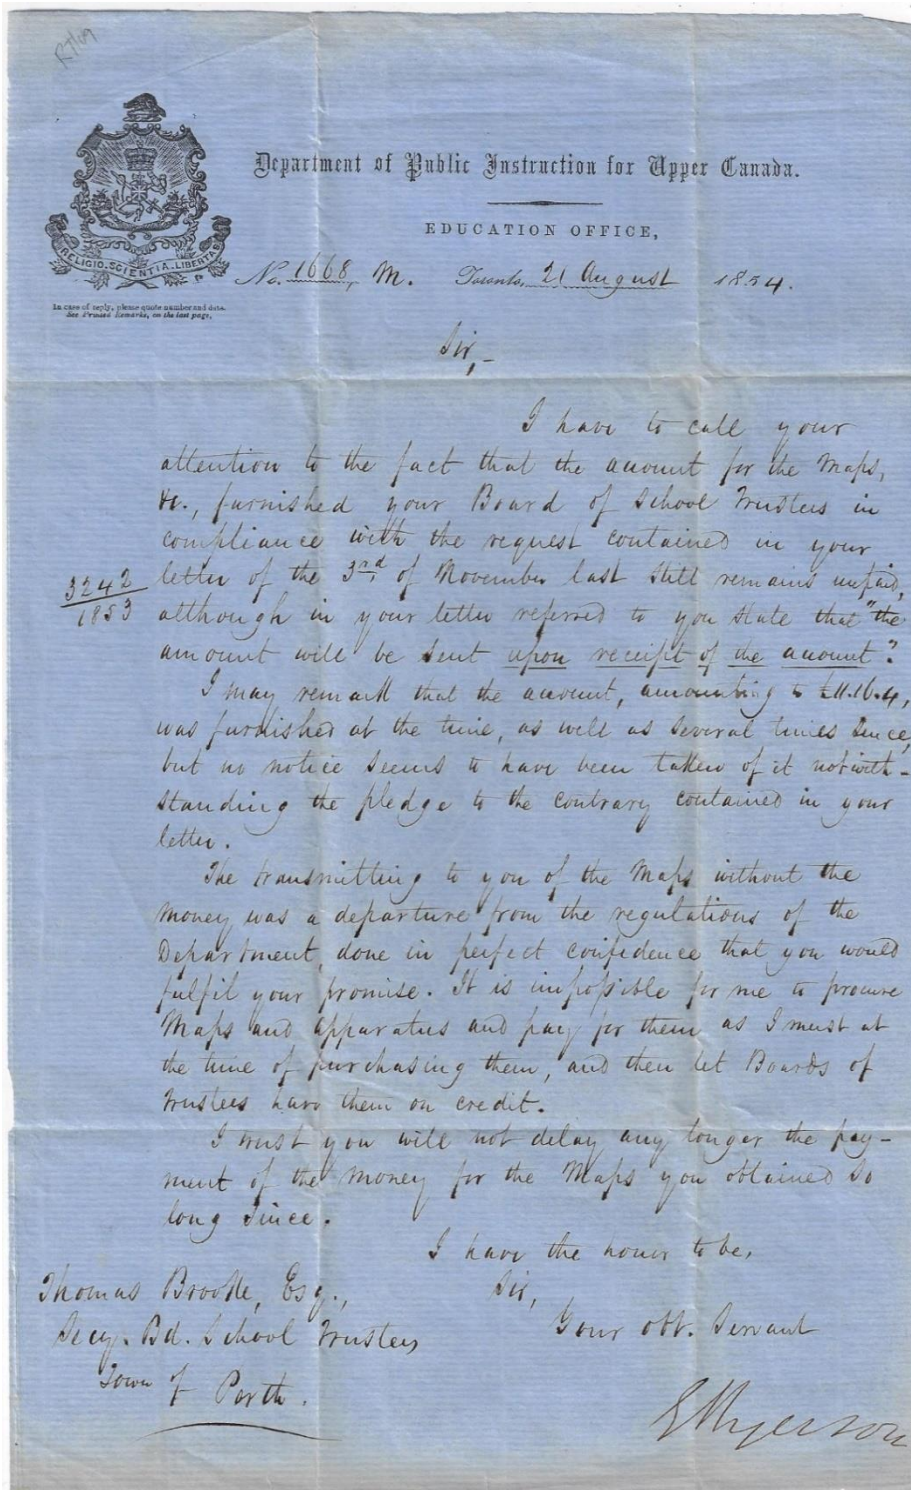 Department of Public Instruction for Upper Canada.
EDUCATION OFFICE,
RELIGIO. SCIENTIA. LIBERTAS
No. 1668, M. Toronto, 21 August 1854.
In case of reply, please quote number and date.
See Printed Remarks, on the last page.
Sir,-
I have to call your
attention to the fact that the account for the Maps,
&c., furnished your Board of School Trustees in
compliance with the request contained in your
3242
1853
letter of the 3rd of November last still remains unpaid,
although in your letter referred to you state that "the
amount will be sent upon receipt of the account".
I may remark that the account, amounting to £11.16.4,
was furnished at the time, as well as several times since,
but no notice seems to have been taken of it notwith-
standing the pledge to the contrary contained in your
letter.
The transmitting to you of the Maps without the
money was a departure from the regulations of the
Department, done in perfect confidence that you would
fulfil your promise. It is impossible for me to procure
Maps and apparatus and pay for them as I must at
the time of purchasing them, and then let Boards of
Trustees have them on credit.
I trust you will not delay any longer the pay-
ment of the money for the Maps you obtained so
long since.
I have the honor to be,
Sir,
Your obt. Servant
Thomas Brooke, Esq.,
Secy. Bd. School Trustees
Town of Perth.
ERyerson